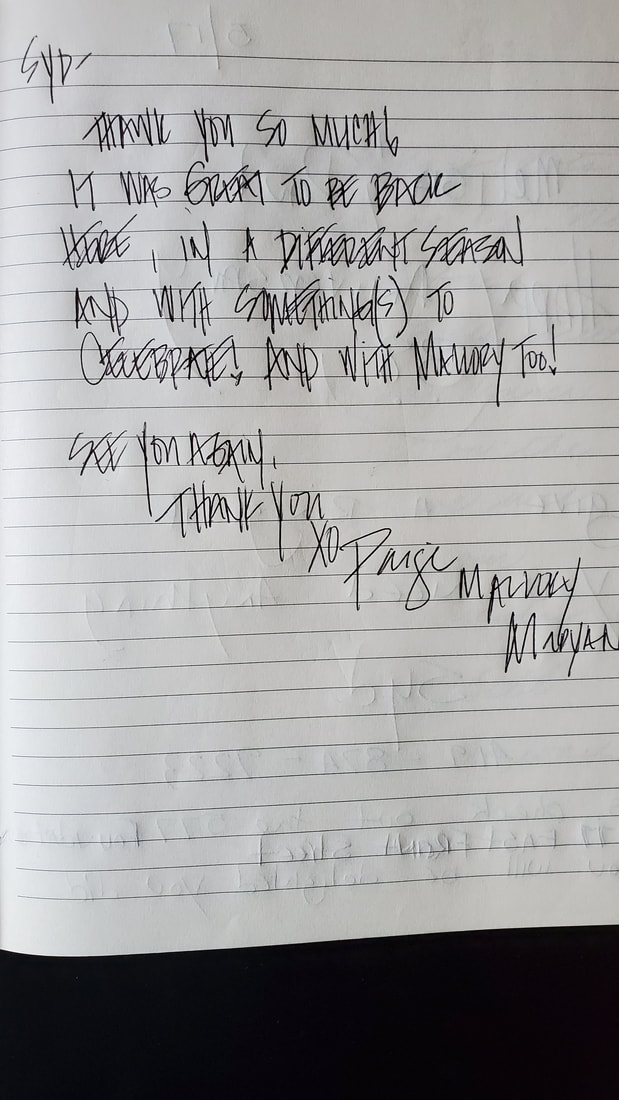 SYD-
THANK YOU SO MUCH!
IT WAS GREAT TO BE BACK
HERE, IN A DIFFERENT SEASON
AND WITH SOMETHING(S) TO
CELEBRATE! AND WITH MALLORY TOO!
SEE YOU AGAIN,
THANK YOU
XO Paige
MALLORY